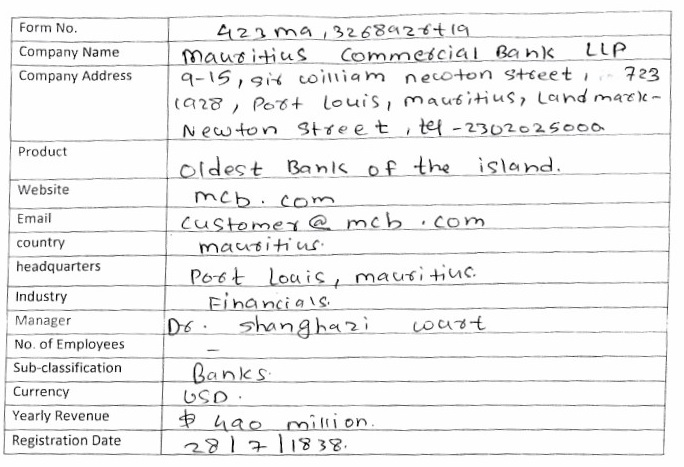 Form No. 423ma,3268926t19
Company Name Mauritius Commercial Bank LLP
Company Address 9-15, sir william newton street, 723
1928, Port Louis, mauritius, Landmark-
Newton Street, tel -2302025000
Product Oldest Bank of the island.
Website mcb.com
Email customer@mcb.com
country mauritius.
headquarters Port Louis, mauritius.
Industry Financials.
Manager Dr. Shanghazi court
No. of Employees –
Sub-classification Banks.
Currency USD.
Yearly Revenue $ 490 million.
Registration Date 28|7|1838.